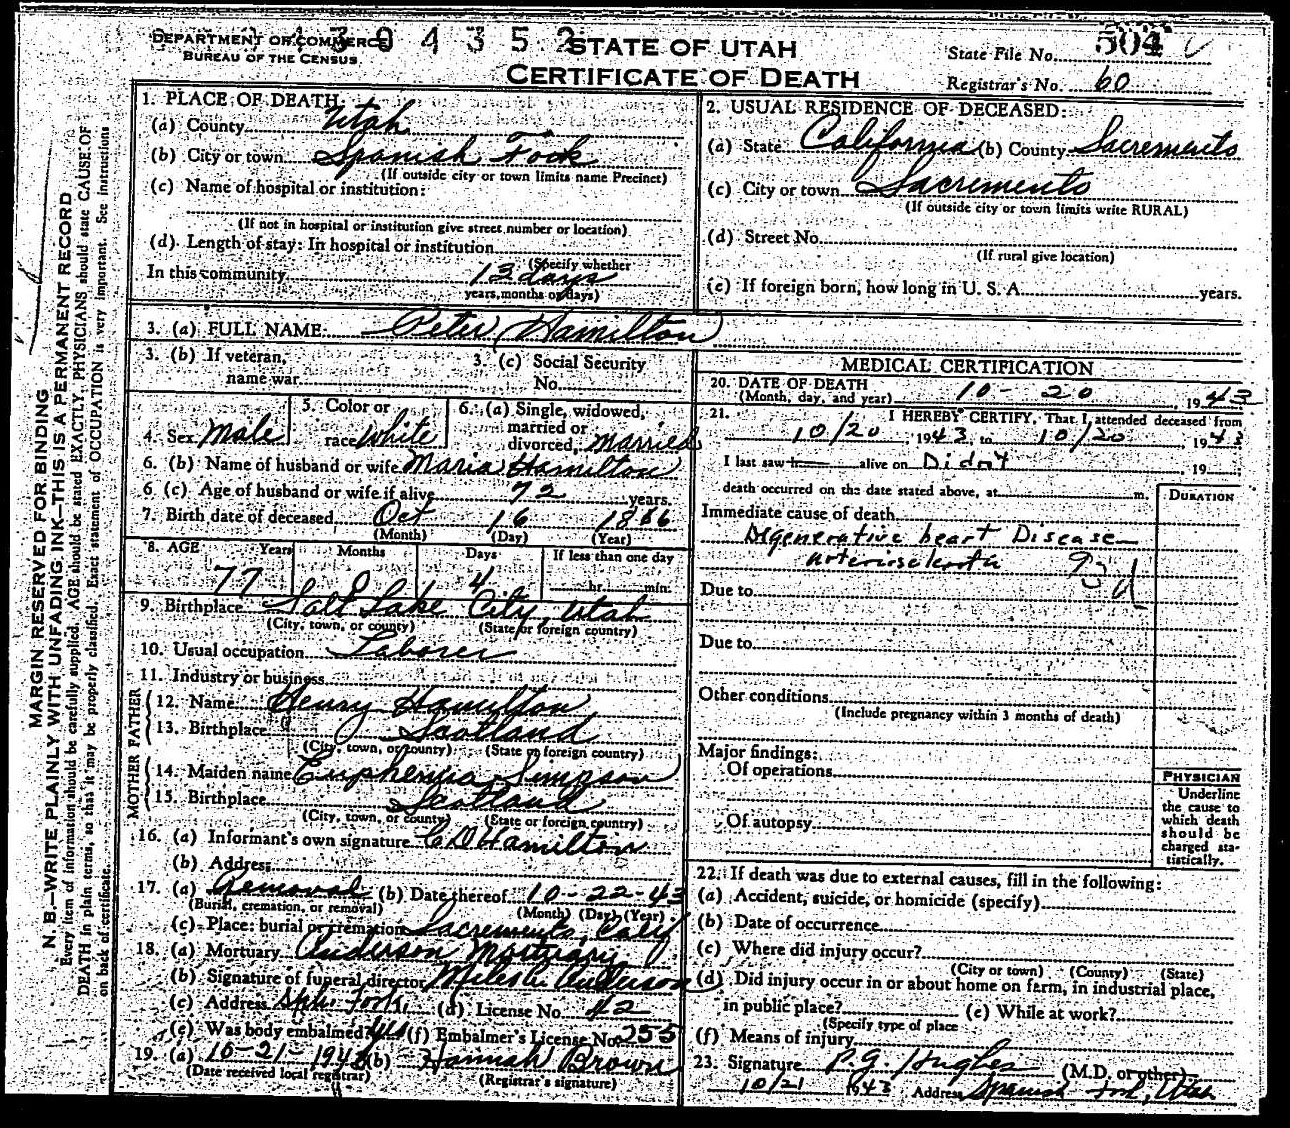 DEPARTMENT OF COMMERCE
BUREAU OF THE CENSUS
4304352
STATE OF UTAH
CERTIFICATE OF DEATH
State File No. 504
Registrar's No. 60
MARGIN RESERVED FOR BINDING
N. B.—WRITE PLAINLY WITH UNFADING INK—THIS IS A PERMANENT RECORD
Every item of information should be carefully supplied. AGE should be stated EXACTLY. PHYSICIANS should state CAUSE OF
DEATH in plain terms, so that it may be properly classified. Exact statement of OCCUPATION is very important. See instructions
on back of certificate.
1. PLACE OF DEATH
(a) County Utah
(b) City or town Spanish Fook
(If outside city or town limits name Precinct)
(c) Name of hospital or institution:
(If not in hospital or institution give street number or location)
(d) Length of stay: In hospital or institution
(Specify whether
In this community 13 days
years, months or days)
2. USUAL RESIDENCE OF DECEASED:
(a) State California (b) County Sacremento
(c) City or town Sacremento
(If outside city or town limits write RURAL)
(d) Street No.
(If rural give location)
(e) If foreign born, how long in U. S. A. years.
3. (a) FULL NAME: Peter Hamilton
3. (b) If veteran,
name war
3. (c) Social Security
No.
4. Sex Male
5. Color or
race White
6. (a) Single, widowed,
married or
divorced, married
6. (b) Name of husband or wife Maria Hamilton
6 (c) Age of husband or wife if alive 72 years.
7. Birth date of deceased Oct 16 1866
(Month) (Day) (Year)
8. AGE Years Months Days If less than one day
77 0 4 hr. min.
9. Birthplace Salt Lake City, Utah
(City, town, or county) (State or foreign country)
10. Usual occupation Laborer
11. Industry or business
FATHER
12. Name Henry Hamilton
13. Birthplace Scotland
(City, town, or county) (State or foreign country)
MOTHER
14. Maiden name Euphemia Simpson
15. Birthplace Scotland
(City, town, or county) (State or foreign country)
16. (a) Informant's own signature C D Hamilton
(b) Address
17. (a) Removal (b) Date thereof 10-22-43
(Burial, cremation, or removal) (Month) (Day) (Year)
(c) Place: burial or cremation Sacremento, Calif
18. (a) Mortuary Anderson Mortuary
(b) Signature of funeral director Miles A. Anderson
(c) Address Sph. Fook. (d) License No. 42
(e) Was body embalmed? Yes (f) Embalmer's License No. 255
19. (a) 10-21-1943 (b) Hannah Brown
(Date received local registrar) (Registrar's signature)
MEDICAL CERTIFICATION
20. DATE OF DEATH
(Month, day, and year) 10-20, 1943
21. I HEREBY CERTIFY, That I attended deceased from
10/20, 1943, to 10/20 1943
I last saw h alive on Didnt, 19
death occurred on the date stated above, at m.
DURATION
Immediate cause of death
Degenerative heart Disease
93 d
Due to
Due to
Other conditions
(Include pregnancy within 3 months of death)
Major findings:
Of operations
Of autopsy
PHYSICIAN
Underline
the cause to
which death
should be
charged sta-
tistically.
22. If death was due to external causes, fill in the following:
(a) Accident, suicide, or homicide (specify)
(b) Date of occurrence
(c) Where did injury occur?
(City or town) (County) (State)
(d) Did injury occur in or about home on farm, in industrial place,
in public place? (e) While at work?
(Specify type of place
(f) Means of injury
23. Signature P. G. Hughes (M.D. or other)
10/21 1943 Address Spanish Fork, Utah